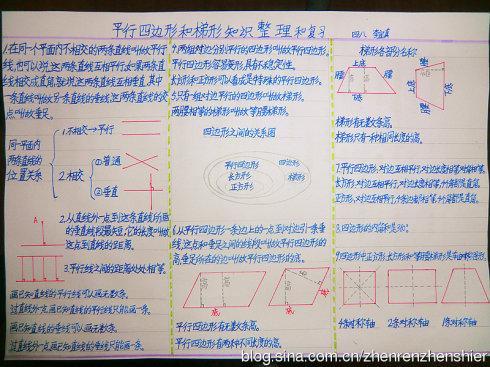 平行四边形和梯形知识整理和复习
四八
1.在同一个平面内不相交的两条直线叫做平行
线,也可以说这两条直线互相平行,如果两条直
线相交成直角,就说这两条直线互相垂直,其中
一条直线叫做另一条直线的垂线,这两条直线的交
点叫做垂足。
同一平面内
两条直线的
位置关系
1.不相交→平行
2.相交
①普通
②垂直
A
2.从直线外一点到这条直线所画
的垂直线段最短,它的长度叫做
这点到直线的距离。
3.平行线之间的距离处处相等。
画已知直线的平行线可以画无数条。
过直线外一点画已知直线的平行线只能画一条。
画已知直线的垂线可以画无数条。
过直线外一点画已知直线的垂线只能画一条。
4.两组对边分别平行的四边形叫做平行四边形。
平行四边形容易变形,具有不稳定性。
长方形和正方形可以看成是特殊的平行四边形。
5.只有一组对边平行的四边形叫做梯形。
两腰相等的梯形叫做等腰梯形。
四边形之间的关系图
平行四边形
长方形
正方形
四边形
梯形
6.从平行四边形一条边上的一点到对边引一条垂
线,这点和垂足之间的线段叫做平行四边形的
高,垂足所在的边叫做平行四边形的底。
高
高
底
底
平行四边形有无数条高。
平行四边形有两种不同长度的高。
梯形各部分名称
上底
腰
高
腰
下底
上底
下底
梯形有无数条高。
梯形只有一种相同长度的高。
7.平行四边形,对边互相平行,对边长度相等,对角相等。
长方形,对边互相平行,对边长度相等,4个角都是直角。
正方形,对边互相平行,4条边长度相等,4个角都是直角。
8.四边形的内角和是360°。
9.四边形中正方形,长方形和等腰梯形是轴对称图形。
4条对称轴
2条对称轴
1条对称轴
blog.sina.com.cn/zhenrenzhenshier